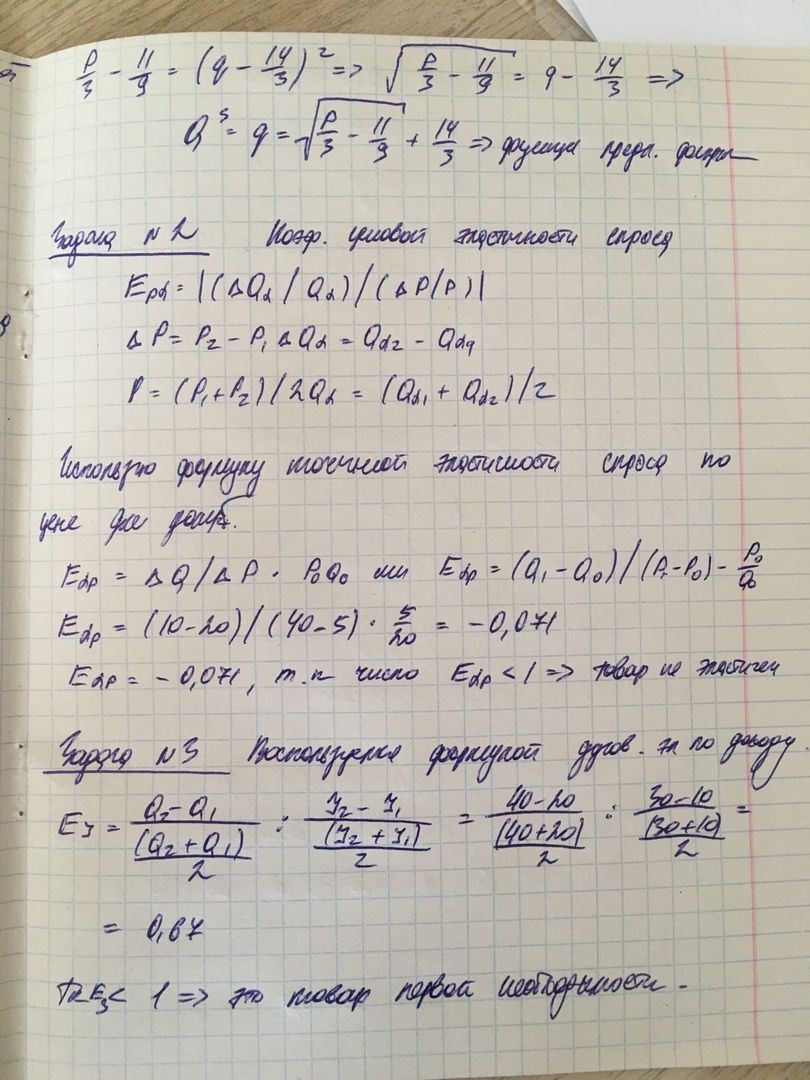 P/3 - 11/9 = (q - 14/3)² => √(P/3 - 11/9) = q - 14/3 =>
Q^S = q = √(P/3 - 11/9) + 14/3 => функция предл. фирмы
Задача N 2 Коэф. ценовой эластичности спроса
Epd = |(ΔQd / Qd) / (ΔP/P)|
ΔP = P₂ - P₁ ΔQd = Qd₂ - Qd₁
P = (P₁+P₂) / 2Qd = (Qd₁ + Qd₂) / 2
Использую формулу точечной эластичности спроса по
цене
Edp = ΔQ / ΔP · P₀Q₀ или Edp = (Q₁ - Q₀) / (P₁ - P₀) - P₀/Q₀
Edp = (10-20) / (40-5) · 5/20 = -0,071
Edp = -0,071, т.к число Edp < 1 => товар не эластичен
Задача N 3 Воспользуемся формулой дугов. эл по доходу.
EJ = (Q₂ - Q₁)/((Q₂ + Q₁)/2) : (J₂ - J₁)/((J₂ + J₁)/2) = (40-20)/((40+20)/2) : (30-10)/((30+10)/2) =
= 0,67
< 1 => это товар первой необходимости.